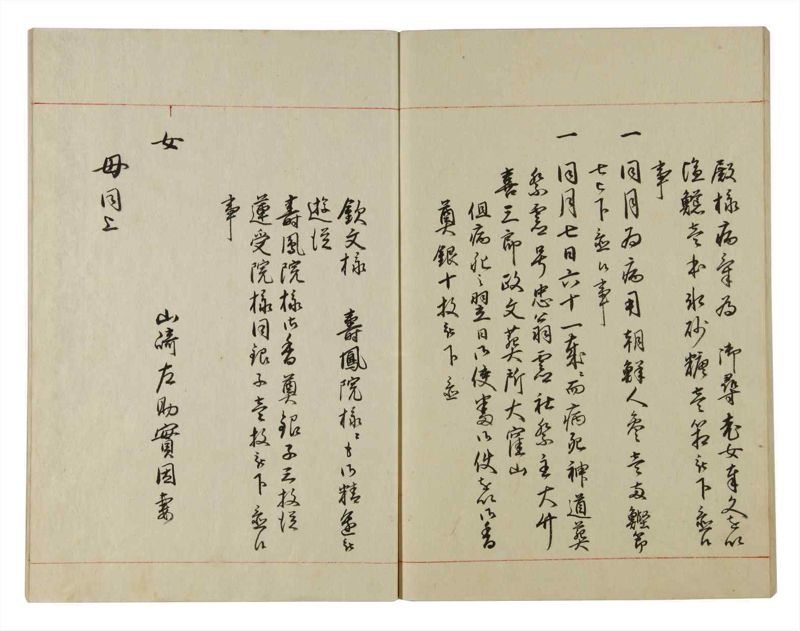 殿様病気為御尋老女奉文を以
塩鱈壱本氷砂糖壱箱被下置候
事
一同月為病用朝鮮人参壱両鰹節
七被下置候事
一同月七日六十一歳ニ而病死神道葬
祭霊号忠翁霊社祭主大竹
喜三郎政文葬所大窪山
但病死之翌日御使番御使を以御香
奠銀十枚被下置
欽文様 壽鳳院様ゟも御精進被
遊候
壽鳳院様御香奠銀子三枚従
蓮受院様同銀子壱枚被下置候
事
山崎左助實因妻
女
母同上